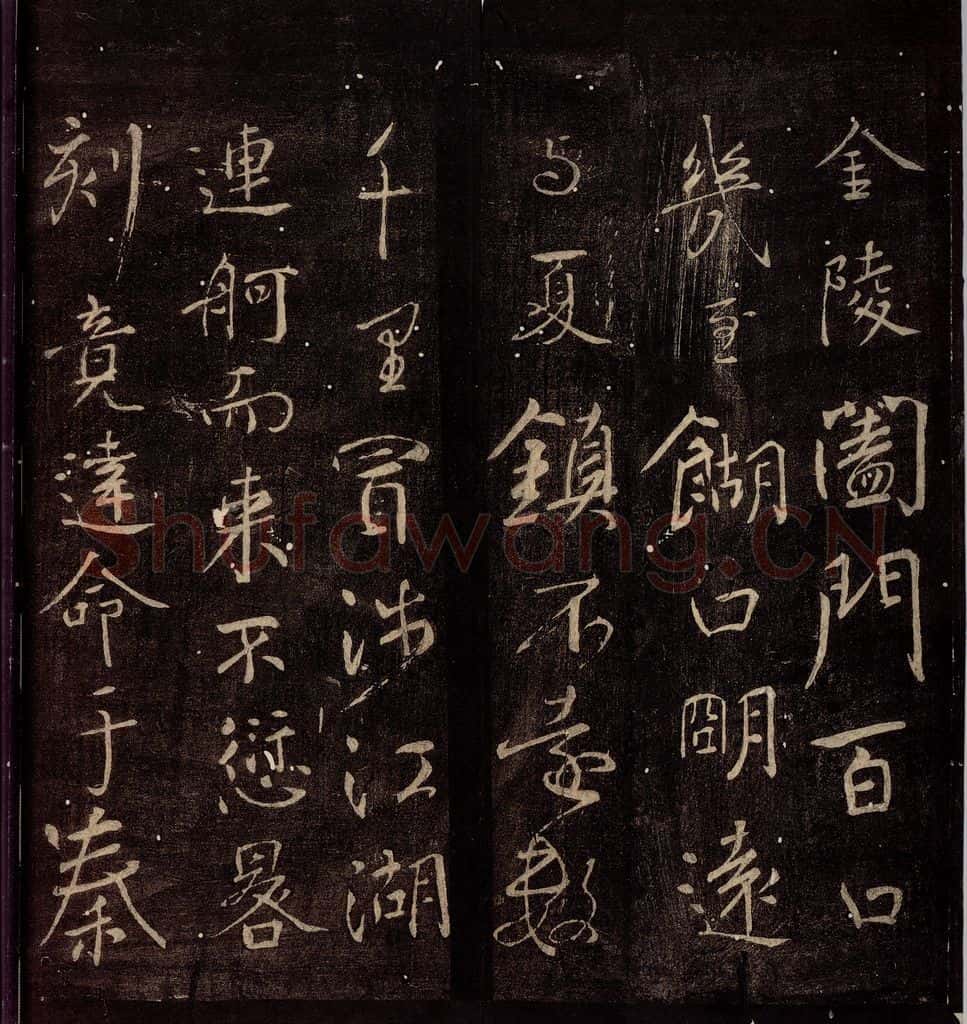 金陵闔門百口
幾至餬口朙遠
与夏鎮不遠數
千里冒涉江湖
連舸而来不愆晷
刻竟達命于秦
Shufawang.CN